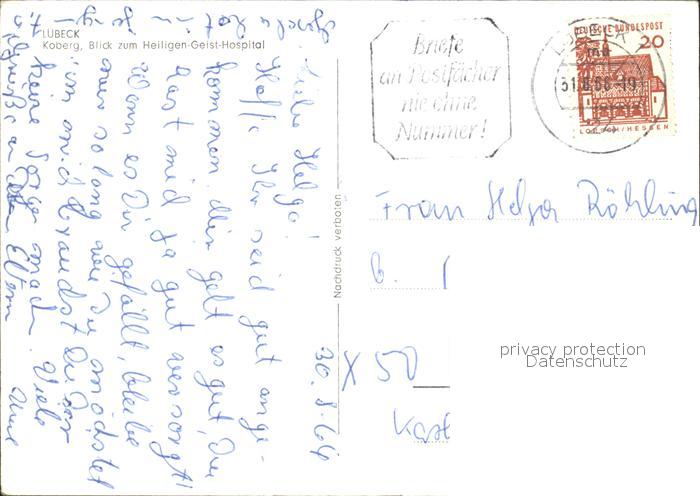 LÜBECK
Koberg, Blick zum Heiligen-Geist-Hospital
30. 8. 66
Liebe Helga!
Hoffe Ihr seid gut ange-
kommen. Mir geht es gut, Du
hast mich ja gut versorgt!
Wenn es Dir gefällt, bleibe
nur so lang wie Du möchtest
um mich brauchst Du Dir
keine Sorgen machen. Viele
Grüße an Eltern
Nachdruck verboten
Briefe
an Postfächer
nie ohne
Nummer!
DEUTSCHE BUNDESPOST
20
LORSCH/HESSEN
31.8.66-19
Frau Helga Röhling
X 50
privacy protection
Datenschutz